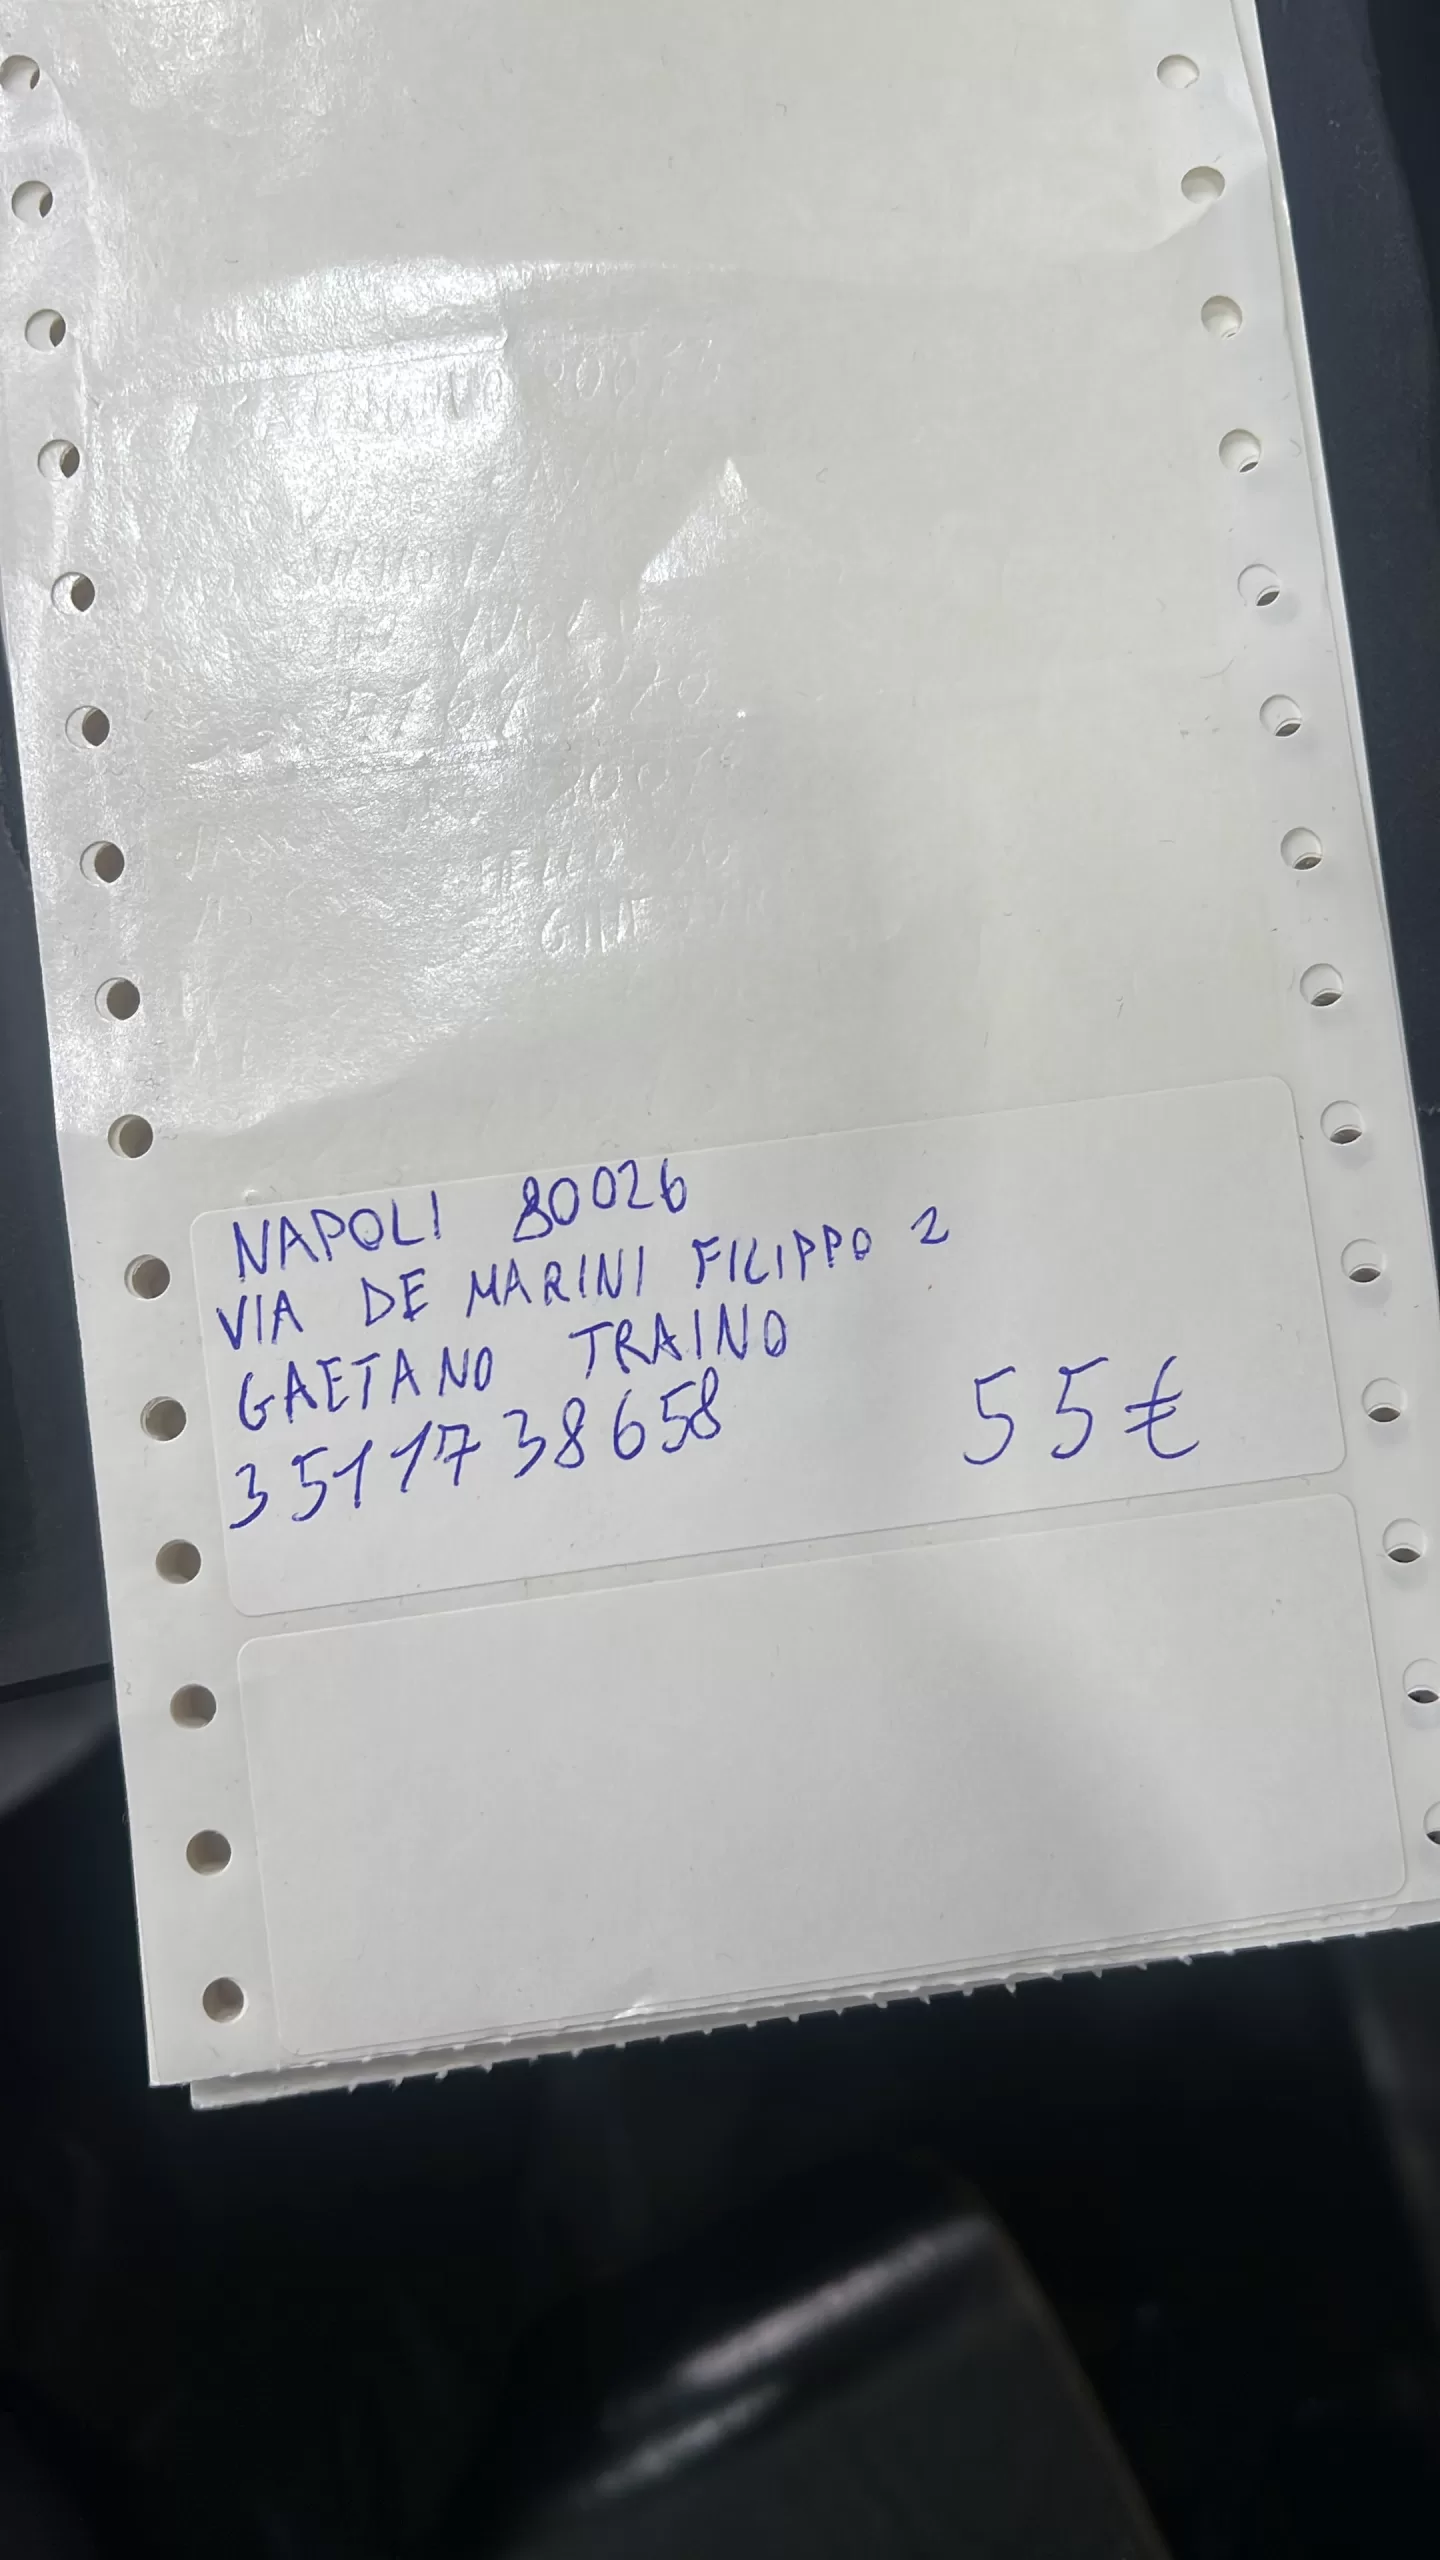 NAPOLI 80026
VIA DE MARINI FILIPPO 2
GAETANO TRAINO
3511738658 55€